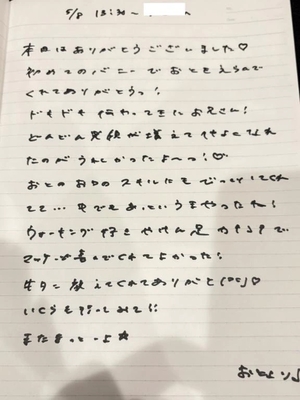 5/8 13:30〜
本日はありがとうございました♡
初めてのバニーでおとをえらんで
くれてありがとうっ!
ドキドキ伝わってきたお兄さん!
どんどん笑顔が増えて仲よくなれ
たのがうれしかったよ〜っ!♡
おとのお口のスキルにもびっくりしてくれ
てて… 中でもあっというまやったね!
ウォーキング好き やけん足
マッサ 喜んでくれてよかった!
えてくれてありがと♡
いくらも行ってみて!!
またきっ〜よ☆
おとより♪